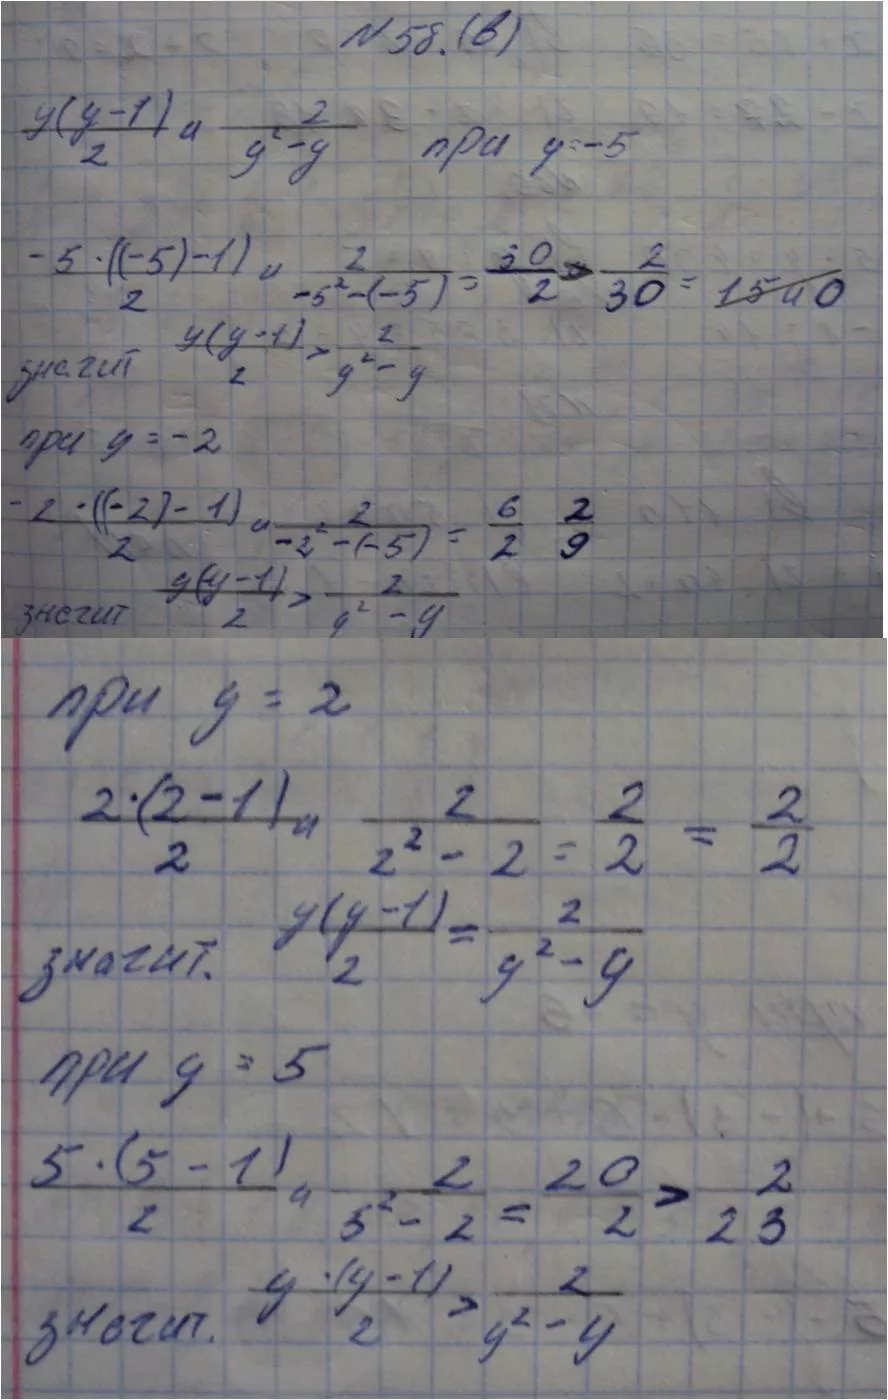 № 56.(в)
y(y-1)/2 и 2/(y²-y) при y=-5
-5·((-5)-1)/2 и 2/(-5²-(-5)) = 30/2 > 2/30 =
значит y(y-1)/2 > 2/(y²-y)
при y=-2
-2·((-2)-1)/2 и 2/(-2²-(-5)) = 6/2 2/9
значит y(y-1)/2 > 2/(y²-y)
при y = 2
2·(2-1)/2 и 2/(2²-2) = 2/2 = 2/2
значит. y(y-1)/2 = 2/(y²-y)
при y = 5
5·(5-1)/2 и 2/(5²-2) = 20/2 > 2/23
значит. y·(y-1)/2 > 2/(y²-y)